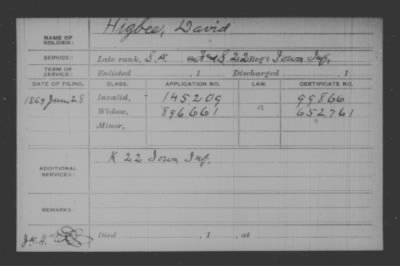 NAME OF SOLDIER: Higbee, David
SERVICE: Late rank, S 22 Reg't Iowa Inf.
TERM OF SERVICE: Enlisted , 1 Discharged , 1
DATE OF FILING. CLASS. APPLICATION NO. LAW. CERTIFICATE NO.
1869 June 28 Invalid, 145209 99866
Widow, 896661 a 652761
Minor,
ADDITIONAL SERVICES: K 22 Iowa Inf.
REMARKS:
Died , 1 , at